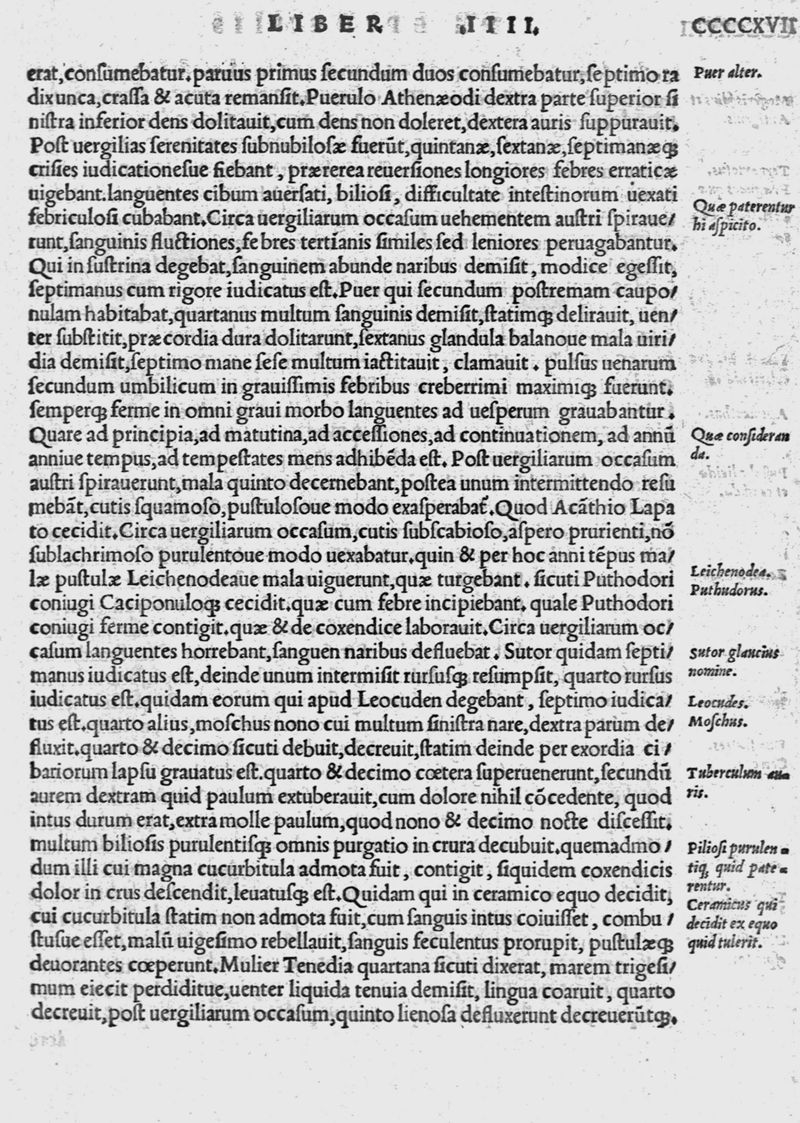 LIBER IIII. CCCCXVII
erat,conſumebatur.paruus primus ſecundum duos conſumebatur,ſeptimo ra
dixunca,craſſa & acuta remanſit.Puerulo Athenæodi dextra parte ſuperior ſi
niſtra inferior dens dolitauit,cum dens non doleret,dextera auris ſuppurauit.
Poſt uergilias ſerenitates ſubnubiloſæ fuerūt,quintanæ,ſextanæ,ſeptimanæꝗ
criſies iudicationeſue fiebant, præterea reuerſiones longiores febres erraticæ
uigebant.languentes cibum auerſati, bilioſi, difficultate inteſtinorum uexati
febriculoſi cubabant.Circa uergiliarum occaſum uehementem auſtri ſpiraue/
runt,ſanguinis fluctiones,febres tertianis ſimiles ſed leniores peruagabantur.
Qui in fuſtrina degebat,ſanguinem abunde naribus demiſit, modice egeſſit,
ſeptimanus cum rigore iudicatus eſt.Puer qui ſecundum poſtremam caupo/
nulam habitabat,quartanus multum ſanguinis demiſit,ſtatimꝗ delirauit, uen/
ter ſubſtitit,præcordia dura dolitarunt,ſextanus glandula balanoue mala uiri/
dia demiſit,ſeptimo mane ſeſe multum iactitauit, clamauit. pulſus uenarum
ſecundum umbilicum in grauiſſimis febribus creberrimi maximiꝗ fuerunt.
ſemperꝗ ferme in omni graui morbo languentes ad ueſperum grauabantur.
Quare ad principia,ad matutina,ad acceſſiones,ad continuationem, ad annū
anniue tempus,ad tempeſtates mens adhibēda eſt. Poſt uergiliarum occaſum
auſtri ſpirauerunt,mala quinto decernebant,poſtea unum intermittendo reſu
mebāt,cutis ſquamoſo,puſtuloſoue modo exaſperabať.Quod Acāthio Lapa
to cecidit.Circa uergiliarum occaſum,cutis ſubſcabioſo,aſpero prurienti,nō
ſublachrimoſo purulentoue modo uexabatur.quin & per hoc anni tēpus ma/
læ puſtulæ Leichenodeaue mala uiguerunt,quæ turgebant. ſicuti Puthodori
coniugi Caciponuloꝗ cecidit.quæ cum febre incipiebant. quale Puthodori
coniugi ferme contigit.quæ & de coxendice laborauit.Circa uergiliarum oc/
caſum languentes horrebant,ſanguen naribus defluebat. Sutor quidam ſepti/
manus iudicatus eſt,deinde unum intermiſit rurſuſꝗ reſumpſit, quarto rurſus
iudicatus eſt.quidam eorum qui apud Leocuden degebant, ſeptimo iudica/
tus eſt.quarto alius,moſchus nono cui multum ſiniſtra nare,dextra parum de/
fluxit.quarto & decimo ſicuti debuit,decreuit,ſtatim deinde per exordia ci/
bariorum lapſu grauatus eſt.quarto & decimo cœtera ſuperuenerunt,ſecundū
aurem dextram quid paulum extuberauit,cum dolore nihil cōcedente, quod
intus durum erat,extra molle paulum,quod nono & decimo nocte diſceſſit.
multum bilioſis purulentiſꝗ omnis purgatio in crura decubuit.quemadmo/
dum illi cui magna cucurbitula admota fuit, contigit, ſiquidem coxendicis
dolor in crus deſcendit,leuatuſꝗ eſt.Quidam qui in ceramico equo decidit,
cui cucurbitula ſtatim non admota fuit,cum ſanguis intus coiuiſſet, combu/
ſtuſue eſſet,malū uigeſimo rebellauit,ſanguis feculentus prorupit, puſtulæꝗ
deuorantes cœperunt.Mulier Tenedia quartana ſicuti dixerat, marem trigeſi/
mum eiecit perdiditue,uenter liquida tenuia demiſit, lingua coaruit, quarto
decreuit,poſt uergiliarum occaſum,quinto lienoſa defluxerunt decreuerūtꝗ.
Puer alter.
Quæ paterentur
hi aſpicito.
Quæ conſideran
da.
Leichenodea.
Puthudorus.
Sutor glaucius
nomine.
Leocudes.
Moſchus.
Tuberculum au-
ris.
Pilioſi purulen-
tiꝗ, quid pate-
rentur.
Ceramicus qui
decidit ex equo
quid tulerit.